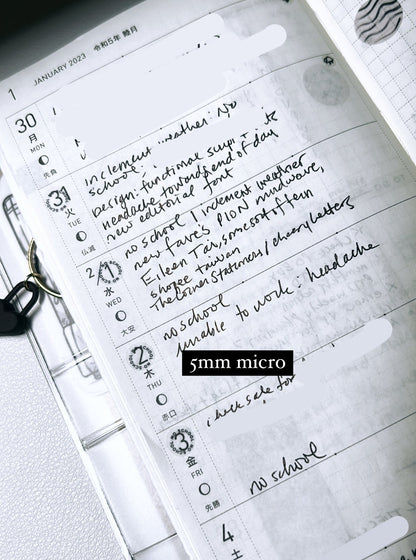 1
JANUARY 2023 令和5年 睦月
30
月
MON
先負
31
火
TUE
仏滅
inclement weather: No
school
Design: functional
headache toward end of day
new editorial font
2/1
水
WED
大安
no school / inclement weather
new fave's PION mudwave,
Eileen Tai, some sort of fern
shopee taiwan
The Corner Stationers / cheery letters
2
木
THU
赤口
no school
unable to work: headache
5mm micro
3
金
FRI
先勝
check sale for
no school
4
土